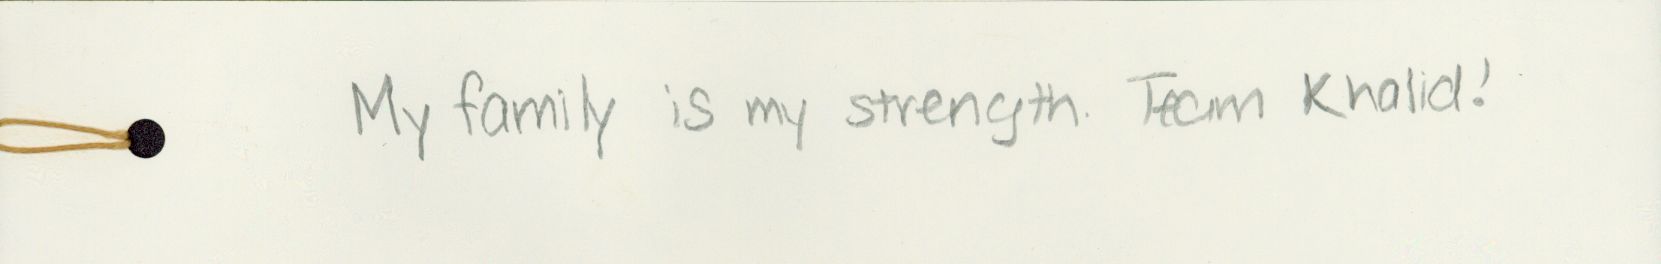 My family is my strength. Team Khalid!